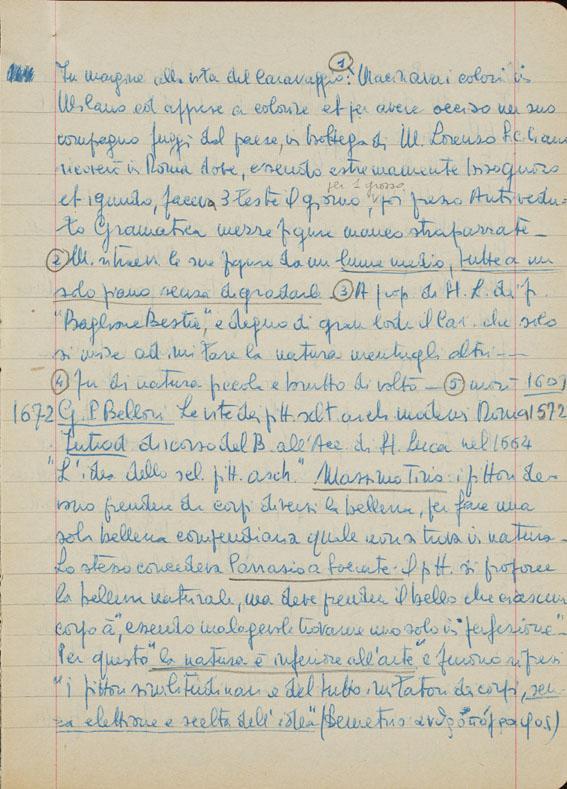 In margine alla vita del Caravaggio: ① Macinava i colori in
Milano ed apprese a colorire et per avere occiso un suo
compagno fuggì dal paese, in bottega di M. Lorenzo
ricoverò in Roma dove, essendo estremamente bisognoso
et ignudo, faceva 3 teste il giorno, per 1 grosso, poi presso Antivedu-
to Gramatica mezze figure manco strapazzate –
② M. ritraeva le sue figure da un lume medio, tutte a un
solo piano senza degradarle ③ A prop. di
"Baglione Bestia", è degno di gran lode il Car. che solo
si mise ad imitare la natura mentre gli altri –
④ fu di natura piccola e brutto di volto – ⑤ morì 1609
1672 G. P. Bellori Le vite dei pitt. scult. arch. moderni Roma 1572
Introd. discorso del B. all'Acc. di S. Luca nel 1664
"L'idea dello scl. pitt. arch." Massimo Tirio: i pittori de-
vono prendere da corpi diversi la bellezza, per fare una
sola bellezza compendiaria quale non si trova in natura –
Lo stesso concedeva Parrasio a Socrate: il pitt. si propone
la bellezza naturale, ma deve prendere il bello che ciascun
corpo à", essendo malagevole trovarne uno solo in "perfezione" –
Per questo "la natura è inferiore all'arte" e furono ripresi
"i pittori similitudinari e del tutto imitatori dei corpi, sen-
za elettione e scelta dell'idea" (Demetrio ανθροπόγραφος)